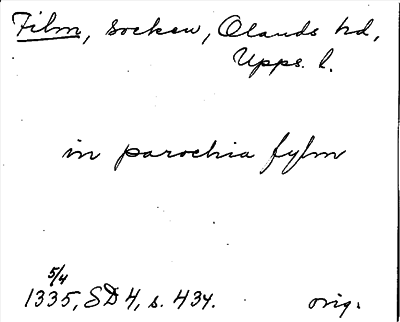 Film, socken, Olands hd,
Upps. l.
in parochia fylm
5/4
1335, SD 4, s. 434. orig.